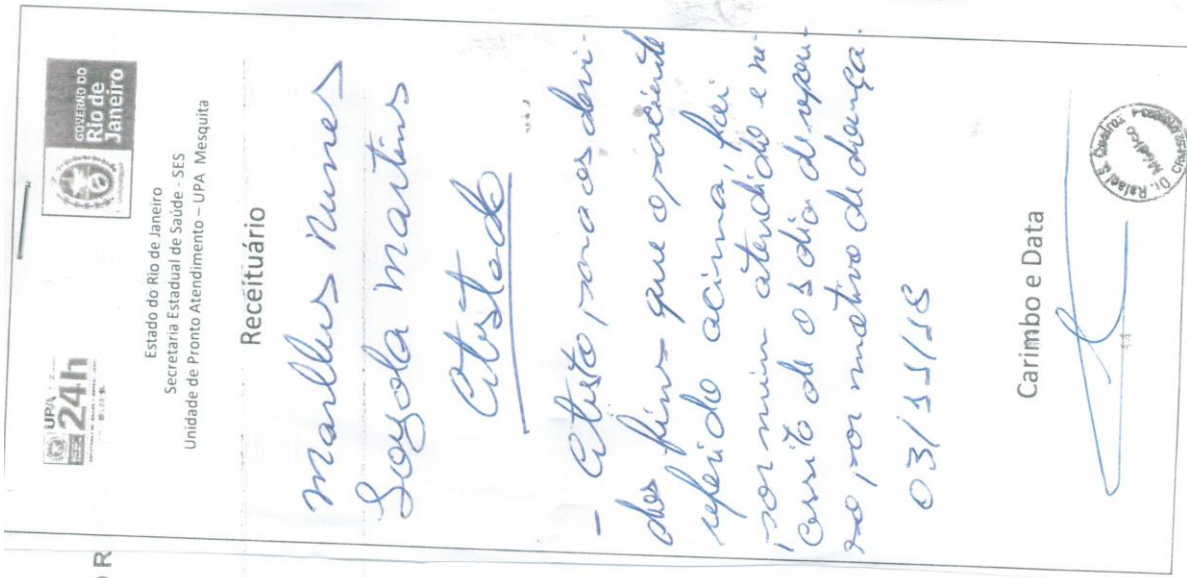 UPA
24h
GOVERNO DO
Rio de
Janeiro
Estado do Rio de Janeiro
Secretaria Estadual de Saúde - SES
Unidade de Pronto Atendimento – UPA Mesquita
Receituário
Marllus Nunes
Loyola Martins
Atestado
- Atesto, para os devi-
dos fins que o paciente
referido acima, foi
por mim atendido e ne-
cessita de 01 dia de repou-
so, por motivo de doença.
03/11/18
Carimbo e Data
Dr. Rafael S. Queiroz
Médico
O R